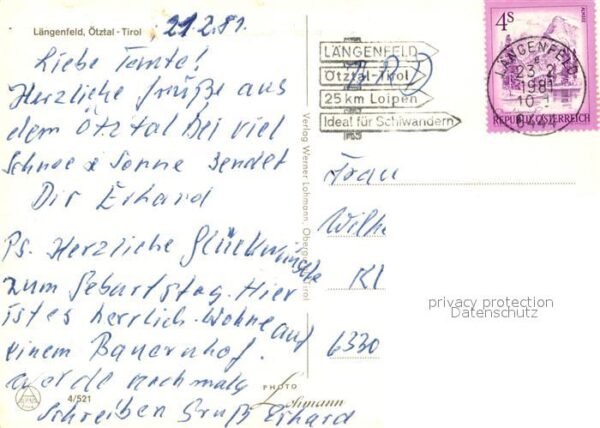 Längenfeld, Ötztal - Tirol
21.2.81.
Liebe Tante!
Herzliche Grüße aus
dem Ötztal bei viel
Schnee & Sonne sendet
Dir Erhard
Ps. Herzliche Glückwünsche
zum Geburtstag. Hier
ist es herrlich. Wohne auf
einem Bauernhof.
werde nochmals
schreiben Gruß Erhard
4/521
PHOTO
Lohmann
Verlag Werner Lohmann, Obergurgl, Tirol
LÄNGENFELD
Ötztal-Tirol
25 km Loipen
Ideal für Schiwandern
4S
ALMSEE
REPUBLIK ÖSTERREICH
LÄNGENFELD
23.2.
1981
10
6444
Frau
Wilhe
Kl
6330
privacy protection
Datenschutz